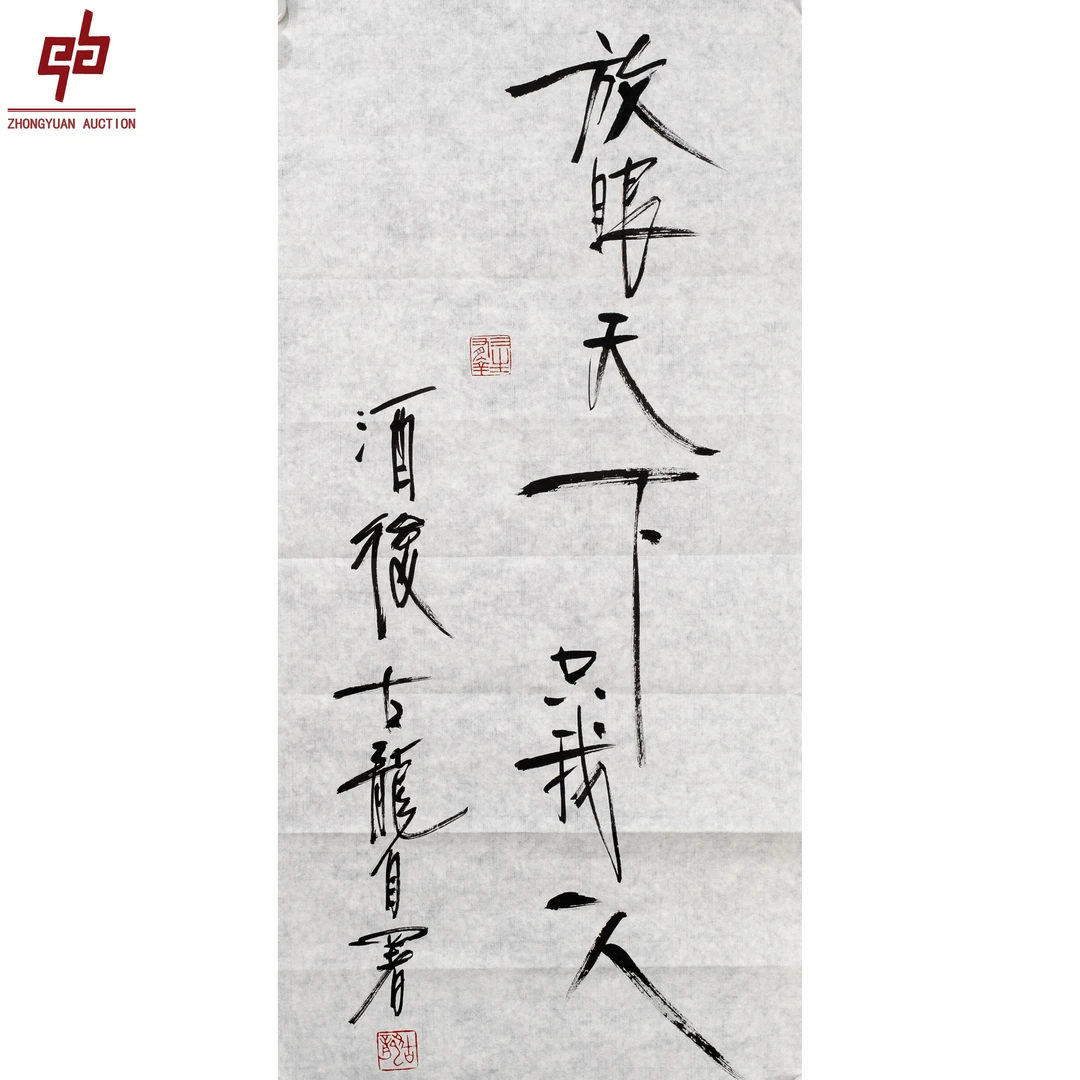 ZHONGYUAN AUCTION
放眼天下只我一人
酒後古龍自署